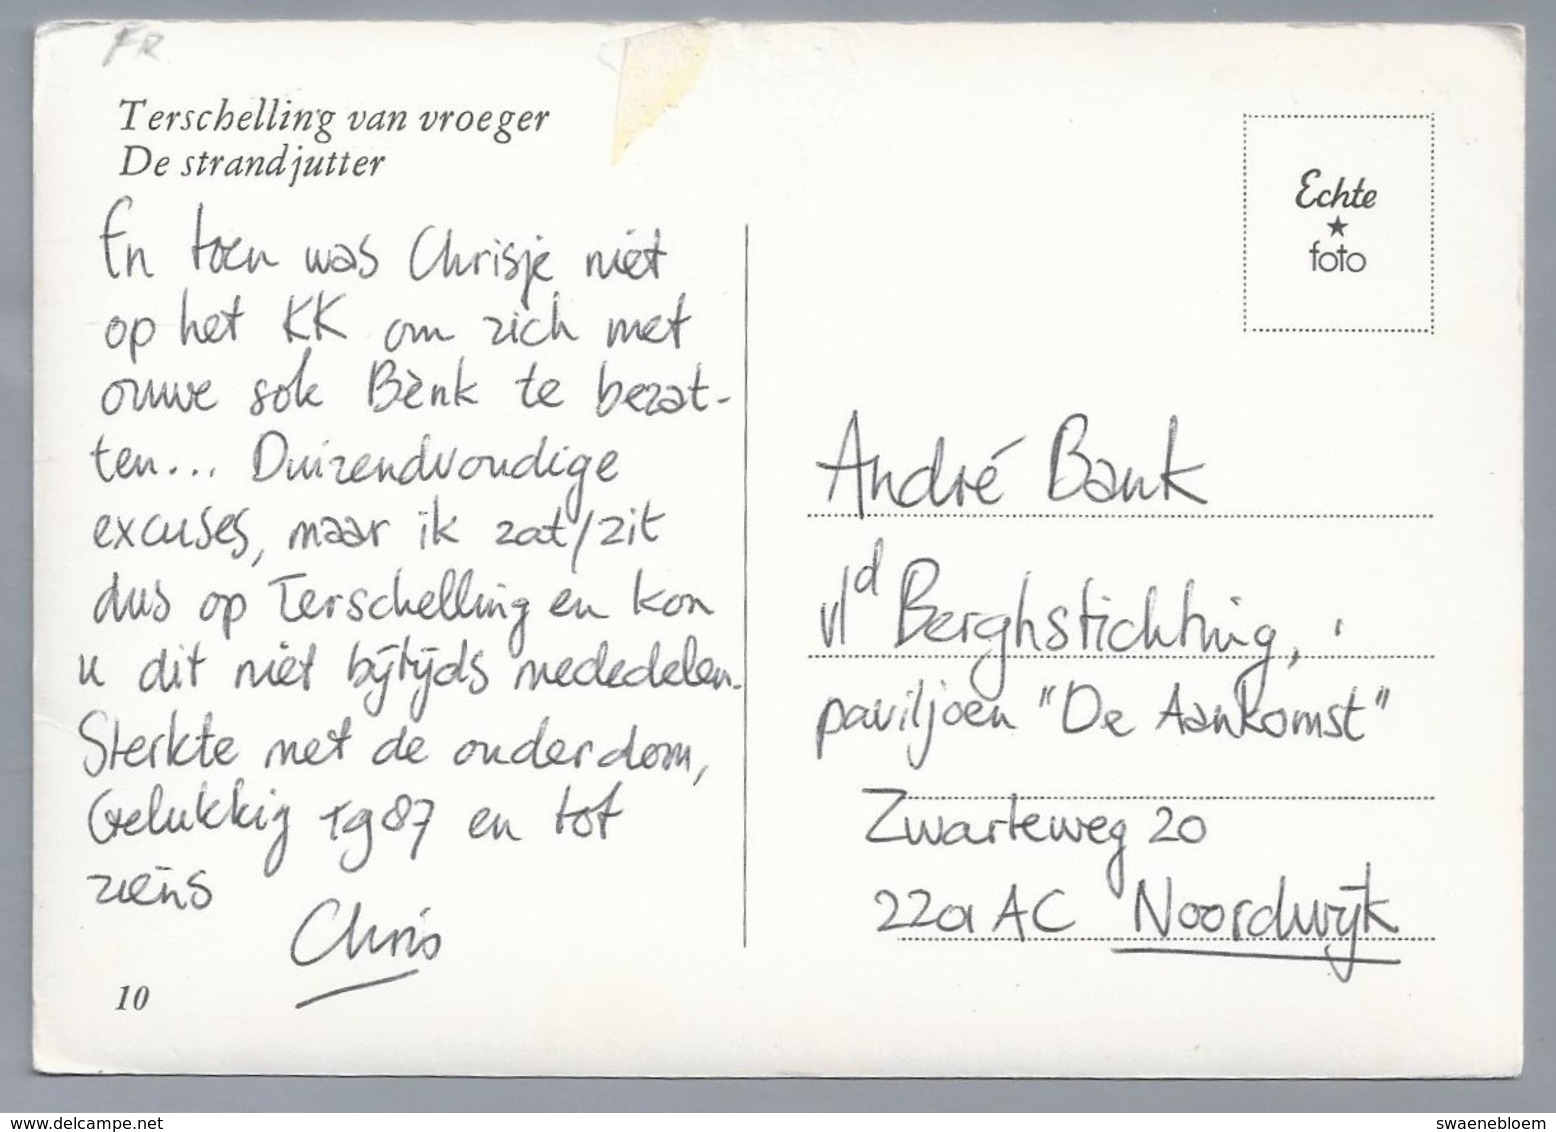 FR
Terschelling van vroeger
De strandjutter
En toen was Chrisje niet
op het KK om zich met
ouwe sok Bènk te bezat-
ten... Duizendvoudige
excuses, maar ik zat/zit
dus op Terschelling en kon
u dit niet bijtijds mededelen.
Sterkte met de onderdom,
Gelukkig 1987 en tot
ziens
Chris
10
Echte
★
foto
André Bank
v/d Berghstichting,
paviljoen "De Aankomst"
Zwarteweg 20
2201 AC Noordwijk
www.delcampe.net
swaenebloem